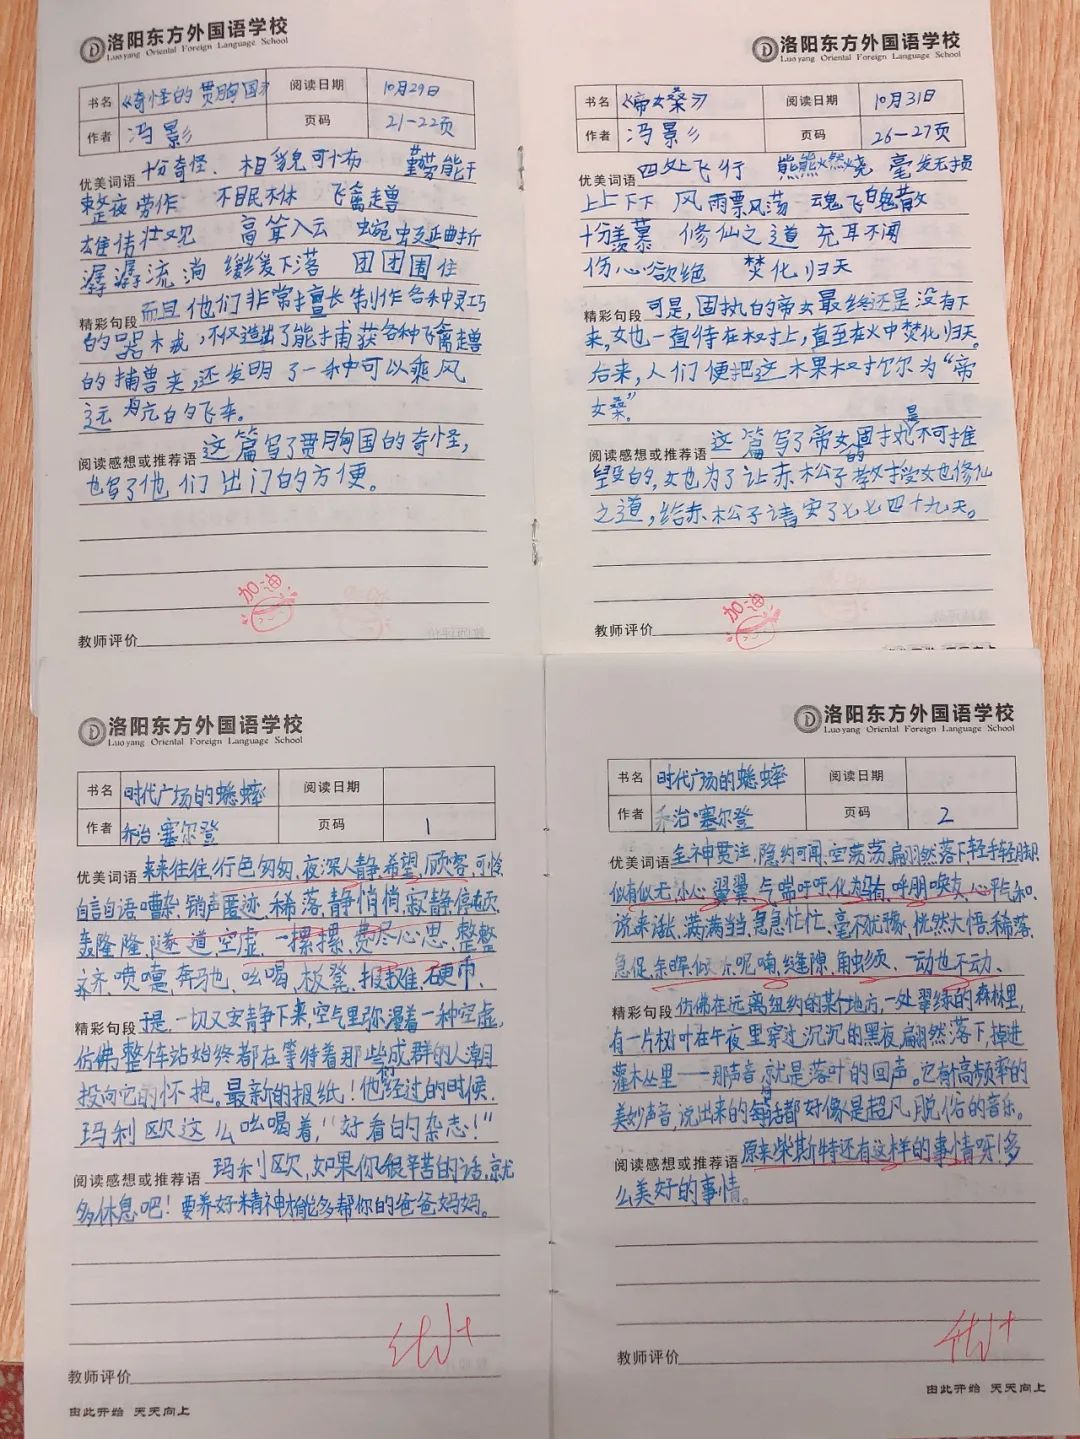 洛阳东方外国语学校
Luoyang Oriental Foreign Language School
书名 《奇怪的贯胸国》 阅读日期 10月29日
作者 冯影 页码 21-22页
优美词语 十分奇怪、相貌可怖 勤劳能干
整夜劳作 不眠不休 飞禽走兽
雄伟壮观 高耸入云 蜿蜒曲折
潺潺流淌 缓缓下落 团团围住
精彩句段 而且他们非常擅长制作各种灵巧
的器械,不仅造出了能捕获各种飞禽走兽
的捕兽夹,还发明了一种可以乘风
远航的飞车。
阅读感想或推荐语 这篇写了贯胸国的奇怪,
也写了他们出门的方便。
加油
教师评价
洛阳东方外国语学校
Luoyang Oriental Foreign Language School
书名 《帝女桑》 阅读日期 10月31日
作者 冯影 页码 26-27页
优美词语 四处飞行 熊熊燃烧 毫发无损
上上下下 风雨飘荡 魂飞魄散
十分羡慕 修仙之道 充耳不闻
伤心欲绝 焚化归天
精彩句段 可是,固执的帝女最终还是没有下
来,她一直待在树上,直至在火中焚化归天。
后来,人们便把这木果树称为“帝
女桑”。
阅读感想或推荐语 这篇写了帝女的固执是不可摧
毁的,她为了让赤松子教授她修仙
之道,给赤松子请安了七七四十九天。
加油
教师评价
洛阳东方外国语学校
Luoyang Oriental Foreign Language School
书名 时代广场的蟋蟀 阅读日期
作者 乔治·塞尔登 页码 1
优美词语 来来往往、行色匆匆、夜深人静、希望、顾客、可怜
自言自语、嘈杂、销声匿迹、稀落、静悄悄、寂静、停顿
轰隆隆、隧道、空虚、一摞摞、费尽心思、整整
齐齐、喷嚏、奔驰、吆喝、板凳、报摊、硬币、
精彩句段 于是,一切又安静下来,空气里弥漫着一种空虚,
仿佛整个车站始终都在等待着那些成群的人潮
投向它的怀抱。最新的报纸!他经过的时候
玛利欧这么吆喝着,“好看的杂志!”
阅读感想或推荐语 玛利欧,如果你很辛苦的话,就
多休息吧!要养好精神才能多帮你的爸爸妈妈。
优+
教师评价
由此开始 天天向上
洛阳东方外国语学校
Luoyang Oriental Foreign Language School
书名 时代广场的蟋蟀 阅读日期
作者 乔治·塞尔登 页码 2
优美词语 全神贯注、隐约可闻、空荡荡、翩然落下、轻手轻脚
似有似无、小心翼翼、气喘吁吁、化为乌有、呼朋唤友、心平气和、
说来话长、满满当当、急急忙忙、毫不犹豫、恍然大悟、稀落、
急促、余晖、呢喃、缝隙、触须、一动也不动、
精彩句段 仿佛在远离纽约的某个地方,一处翠绿的森林里,
有一片树叶在午夜里穿过沉沉的黑夜,翩然落下,掉进
灌木丛里——那声音就是落叶的回声。它有个高频率的
美妙声音,说出来的每句话都好像是超凡脱俗的音乐。
阅读感想或推荐语 原来柴斯特还有这样的事情呀!多
么美好的事情。
优+
教师评价
由此开始 天天向上